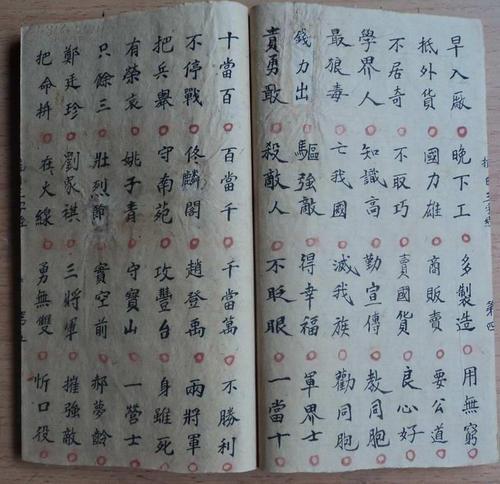 早入廠 晚下工 多製造 用無窮
抵外貨 國力雄 商販賣 要公道
不居奇 不取巧 賣國貨 良心好
學界人 知識高 勤宣傳 教同胞
最狼毒 亡我國 滅我族 勸同胞
錢力出 驅強敵 得幸福 軍界士
責勇敢 殺敵人 不眨眼 一當十
十當百 百當千 千當萬 不勝利
不停戰 佟麟閣 趙登禹 兩將軍
把兵舉 守南苑 攻豐台 身雖死
有榮哀 姚子青 守寶山 一營士
只餘三 壯烈節 實空前 郝夢齡
鄭廷珍 劉家祺 三將軍 摧強敵
把命拚 火線 勇無雙 忻口役